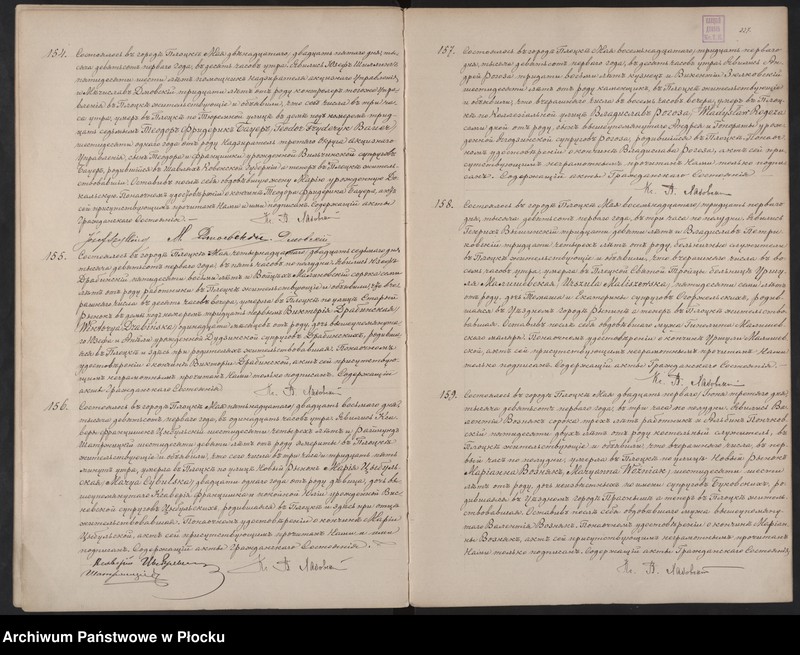 154. Состоялось въ городѣ Плоцкѣ Мая двѣнадцатаго, двадцать пятаго дня, ты-
сяча девятьсотъ перваго года, въ десять часовъ утра. Явились
пятидесяти шести лѣтъ помощникъ Надзирателя акцизнаго Управленія,
и тридцати лѣтъ отъ роду контролеръ того-же Упра-
вленія въ Плоцкѣ жительствующіе и объявили, что сего числа въ три ча-
са утра, умеръ въ Плоцкѣ по улицѣ въ домѣ подъ номеромъ трид-
цать седьмымъ Теодоръ Фридерикъ Бауеръ, Teodor Fryderyk Bauer,
шестидесяти одного года отъ роду Надзиратель третьяго Округа акцизнаго
Управленія, сынъ Теодора и Франциски урожденной супруговъ
Бауеръ, родившійся въ Ковенской Губерніи а теперь въ Плоцкѣ житель-
ствовавшій. Оставивъ послѣ себя овдовѣвшую жену Марію урожденную
По настоятельномъ удостовѣреніи о кончинѣ Теодора-Фридерика Бауера, актъ
сей присутствующимъ прочитанъ Нами и ими подписанъ. Содержащій акты
Гражданскаго Состоянія.
155. Состоялось въ городѣ Плоцкѣ Мая четырнадцатаго, двадцать седьмаго дня,
тысяча девятьсотъ перваго года, въ пять часовъ по полудни. Явились Іосифъ
Драбинскій пятидесяти восьми лѣтъ и Войцѣхъ сорока семи
лѣтъ отъ роду работники въ Плоцкѣ жительствующіе и объявили, что вче-
рашняго числа въ десять часовъ вечера, умерла въ Плоцкѣ по улицѣ Старый
Рынокъ въ домѣ подъ номеромъ тридцать первымъ Викторія Драбинская,
Wiktorya Drabińska, одинадцати мѣсяцевъ отъ роду, дочь вышеупомянута-
го Іосифа и урожденной супруговъ Драбинскихъ, родивша-
яся въ Плоцкѣ и здѣсь при родителяхъ жительствовавшая. По настоятельномъ
удостовѣреніи о кончинѣ Викторіи Драбинской, актъ сей присутствую-
щимъ неграмотнымъ прочитанъ Нами только подписанъ. Содержащій
акты Гражданскаго Состоянія.
156. Состоялось въ городѣ Плоцкѣ Мая пятнадцатаго, двадцать восьмаго дня,
тысяча девятьсотъ перваго года, въ одинадцать часовъ утра. Явились Кса-
верій Цыбульскій шестидесяти четырехъ лѣтъ и Раймундъ
шестидесяти девяти лѣтъ отъ роду эмериты въ Плоцкѣ
жительствующіе и объявили, что сего числа въ три часа и тридцать пять
минутъ утра, умерла въ Плоцкѣ по улицѣ Новый Рынокъ Марія Цыбуль-
ская, Marya Cybulska, двадцати одного года отъ роду дѣвица, дочь вы-
шеупомянутаго Ксаверія Франциска и покойной урожденной
супруговъ Цыбульскихъ, родившаяся въ Плоцкѣ и здѣсь при отцѣ
жительствовавшая. По настоятельномъ удостовѣреніи о кончинѣ Маріи
Цыбульской, актъ сей присутствующимъ прочитанъ Нами и ими
подписанъ. Содержащій акты Гражданскаго Состоянія.
157. Состоялось въ городѣ Плоцкѣ Мая восемнадцатаго, тридцать перваго
дня, тысяча девятьсотъ перваго года, въ десять часовъ утра. Явились Ан-
дрей Рогоза тридцати восьми лѣтъ кузнецъ и Викентій
шестидесяти лѣтъ отъ роду въ Плоцкѣ жительствующіе
и объявили, что вчерашняго числа въ восемь часовъ вечера, умеръ въ Плоц-
кѣ по Коллегіальной улицѣ Владиславъ Рогоза, Władysław Rogoza
семи дней отъ роду, сынъ вышеупомянутаго Андрея и Гонораты урож-
денной супруговъ Рогоза, родившійся въ Плоцкѣ. По настоя-
тельномъ удостовѣреніи о кончинѣ Владислава Рогоза, актъ сей при-
сутствующимъ неграмотнымъ прочитанъ Нами только подпи-
санъ. Содержащій акты Гражданскаго Состоянія
158. Состоялось въ городѣ Плоцкѣ Мая восемнадцатаго, тридцать перваго
дня, тысяча девятьсотъ перваго года, въ три часа по полудни. Явились
Генрихъ тридцати девяти лѣтъ и Владиславъ Петри-
ковскій тридцати четырехъ лѣтъ отъ роду, больничные служители
въ Плоцкѣ жительствующіе и объявили, что вчерашняго числа въ во-
семь часовъ утра, умерла въ Плоцкой Святой Троицы больницѣ Уршу-
ля Малишевская, Urszula Maliszewska, пятидесяти семи лѣтъ
отъ роду, дочь и Екатерины супруговъ родив-
шаяся въ Уѣздномъ городѣ Рыпинѣ а теперь въ Плоцкѣ жительство-
вавшая. Оставивъ послѣ себя овдовѣвшаго мужа Малишев-
скаго маляра. По настоятельномъ удостовѣреніи о кончинѣ Уршули Малишев-
ской, актъ сей присутствующимъ неграмотнымъ прочитанъ Нами
только подписанъ. Содержащій акты Гражданскаго Состоянія.
159. Состоялось въ городѣ Плоцкѣ Мая двадцать перваго, Іюня третьяго дня,
тысяча девятьсотъ перваго года, въ три часа по полудни. Явились Ва-
лентій Вознякъ сорока трехъ лѣтъ работникъ и
тридцати двухъ лѣтъ отъ роду костельный служитель, въ
Плоцкѣ жительствующіе и объявили, что вчерашняго числа, въ пер-
вый часъ по полудни, умерла въ Плоцкѣ по улицѣ Новый Рынокъ
Маріанна Вознякъ, Maryanna Woźniak, шестидесяти шести
лѣтъ отъ роду, дочь неизвѣстныхъ по имени супруговъ Буковскихъ, ро-
дившаяся въ Уѣздномъ городѣ Праснышѣ а теперь въ Плоцкѣ житель-
ствовавшая. Оставивъ послѣ себя овдовѣвшаго мужа вышеупомяну-
таго Валентія Вознякъ. По настоятельномъ удостовѣреніи о кончинѣ Маріан-
ны Вознякъ, актъ сей присутствующимъ неграмотнымъ прочитанъ
Нами только подписанъ. Содержащій акты Гражданскаго Состоянія
Archiwum Państwowe w Płocku